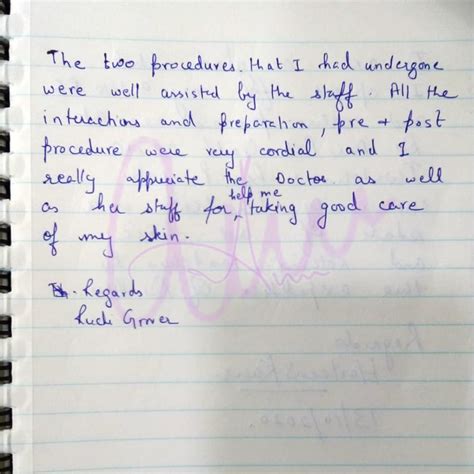 The two procedures. that I had undergone
were well assisted by the staff. All the
interactions and preparation, pre + post
procedure were very cordial and I
really appreciate the Doctor as well
as her staff for, help me taking good care
of my skin.
Regards
Ruchi Grover
Regards
13/10/2020.